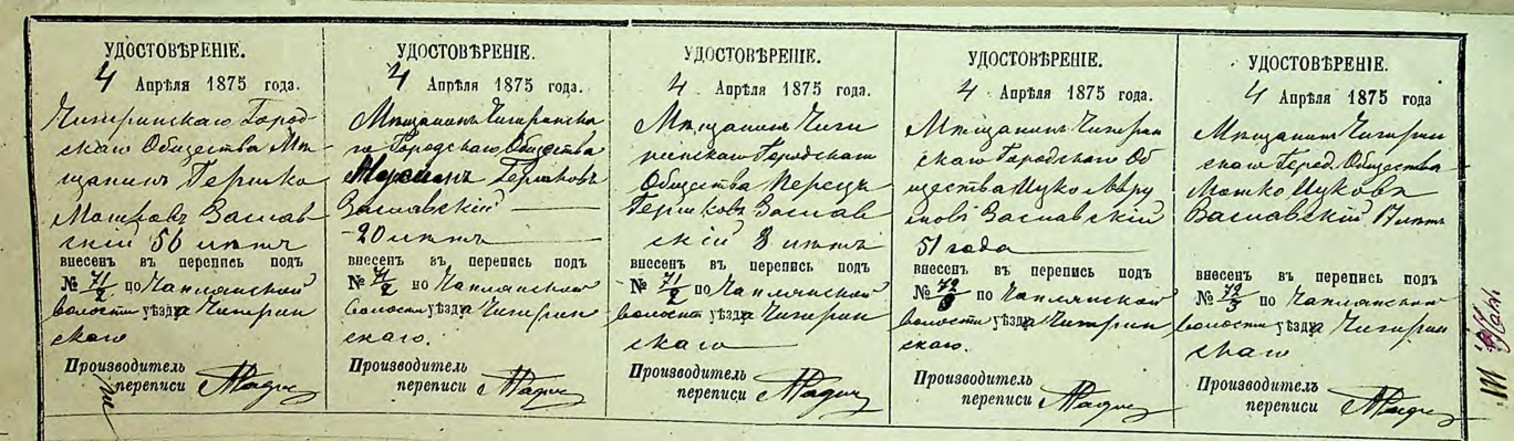 УДОСТОВѢРЕНІЕ.
4 Апрѣля 1875 года.
Чигиринскаго Город-
скаго Общества Мѣ-
щанинъ Гершко
Мошковъ Заслав-
скій 56 лѣтъ
внесенъ въ перепись подъ
№ 71/2 по Чаплинской
волости уѣзда Чигирин
скаго
Производитель
переписи
УДОСТОВѢРЕНІЕ.
4 Апрѣля 1875 года.
Мѣщанинъ Чигиринска
го Городскаго Общества
Гершковъ
Заславскій
20 лѣтъ
внесенъ въ перепись подъ
№ 71/2 по Чаплинской
волости уѣзда Чигирин
скаго.
Производитель
переписи
УДОСТОВѢРЕНІЕ.
4 Апрѣля 1875 года.
Мѣщанинъ Чиги
ринскаго Городскаго
Общества Перецъ
Гершковъ Заслав
скій 8 лѣтъ
внесенъ въ перепись подъ
№ 71/2 по Чаплинской
волости уѣзда Чигирин
скаго
Производитель
переписи
УДОСТОВѢРЕНІЕ.
4 Апрѣля 1875 года.
Мѣщанинъ Чигирин
скаго Городскаго Об
щества Ицко
Заславскій
51 года
внесенъ въ перепись подъ
№ 72/3 по Чаплинской
волости уѣзда Чигирин
скаго.
Производитель
переписи
УДОСТОВѢРЕНІЕ.
4 Апрѣля 1875 года
Мѣщанинъ Чигирин
скаго Город. Общества
Мошко Ицковъ
Заславскій 17 лѣтъ
внесенъ въ перепись подъ
№ 72/3 по Чаплинской
волости уѣзда Чигирин
скаго
Производитель
переписи